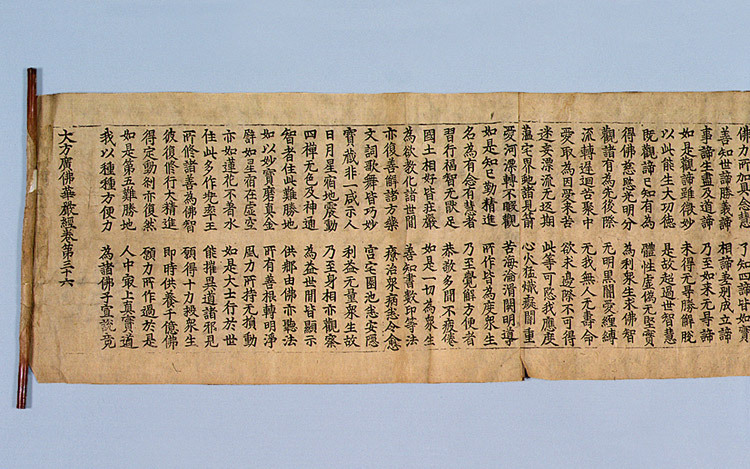 佛力所加具念慧 了知四諦皆如實
善知世諦勝義諦 相諦差別成立諦
事諦生盡及道諦 乃至如來无㝵諦
如是觀諦雖微妙 未得无㝵勝解脫
以此能生大功德 是故超過世智慧
既觀諦已知有為 體性虛偽无堅實
得佛慈愍光明分 為利衆生求佛智
觀諸有為先後際 无明黑闇愛纏縛
流轉遲迴苦聚中 无我无人无壽命
愛取為因受來苦 欲求邊際不可得
迷妄漂流无返期 此等可愍我應度
蘊宅界虵諸見箭 心火猛熾癡闇重
愛河漂轉不暇觀 苦海淪湑闕明導
如是知已勤精進 所作皆為度衆生
名為有念有慧者 乃至覺解方便者
習行福智无猒足 恭敬多聞不疲倦
國土相好皆莊嚴 如是一切為衆生
為欲教化諸世間 善知書數印等法
亦復善解諸方藥 療治衆病悉令愈
文詞歌舞皆巧妙 宮宅園池悉安隱
寶藏非一咸示人 利益无量衆生故
日月星宿地震動 乃至身相亦觀察
四禪无色及神通 為益世間皆顯示
智者住此難勝地 供那由佛亦聽法
如以妙寶磨真金 所有善根轉明淨
譬如星宿在虛空 風力所持无損動
亦如蓮花不著水 如是大士行於世
住此多作兜率王 能摧異道諸邪見
所修諸善為佛智 願得十力救衆生
彼復修行大精進 即時供養千億佛
得定動剎亦復然 願力所作過於是
如是第五難勝地 人中最上真實道
我以種種方便力 為諸佛子宣說竟
大方廣佛華嚴經卷第三十六